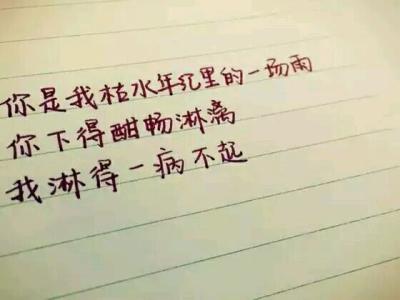 你是我枯水年纪里的一场雨
你下得酣畅淋漓
我淋得一病不起